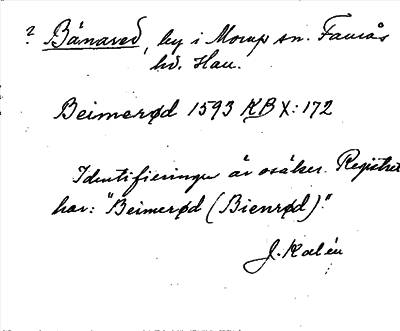 ? Bånared, by i Morup sn. Faurås
hd. Hall.
Beimerød 1593 KB X: 172
Identifieringen är osäker. Registret
har: "Beimerød (Bienrød)."
J. Kalén